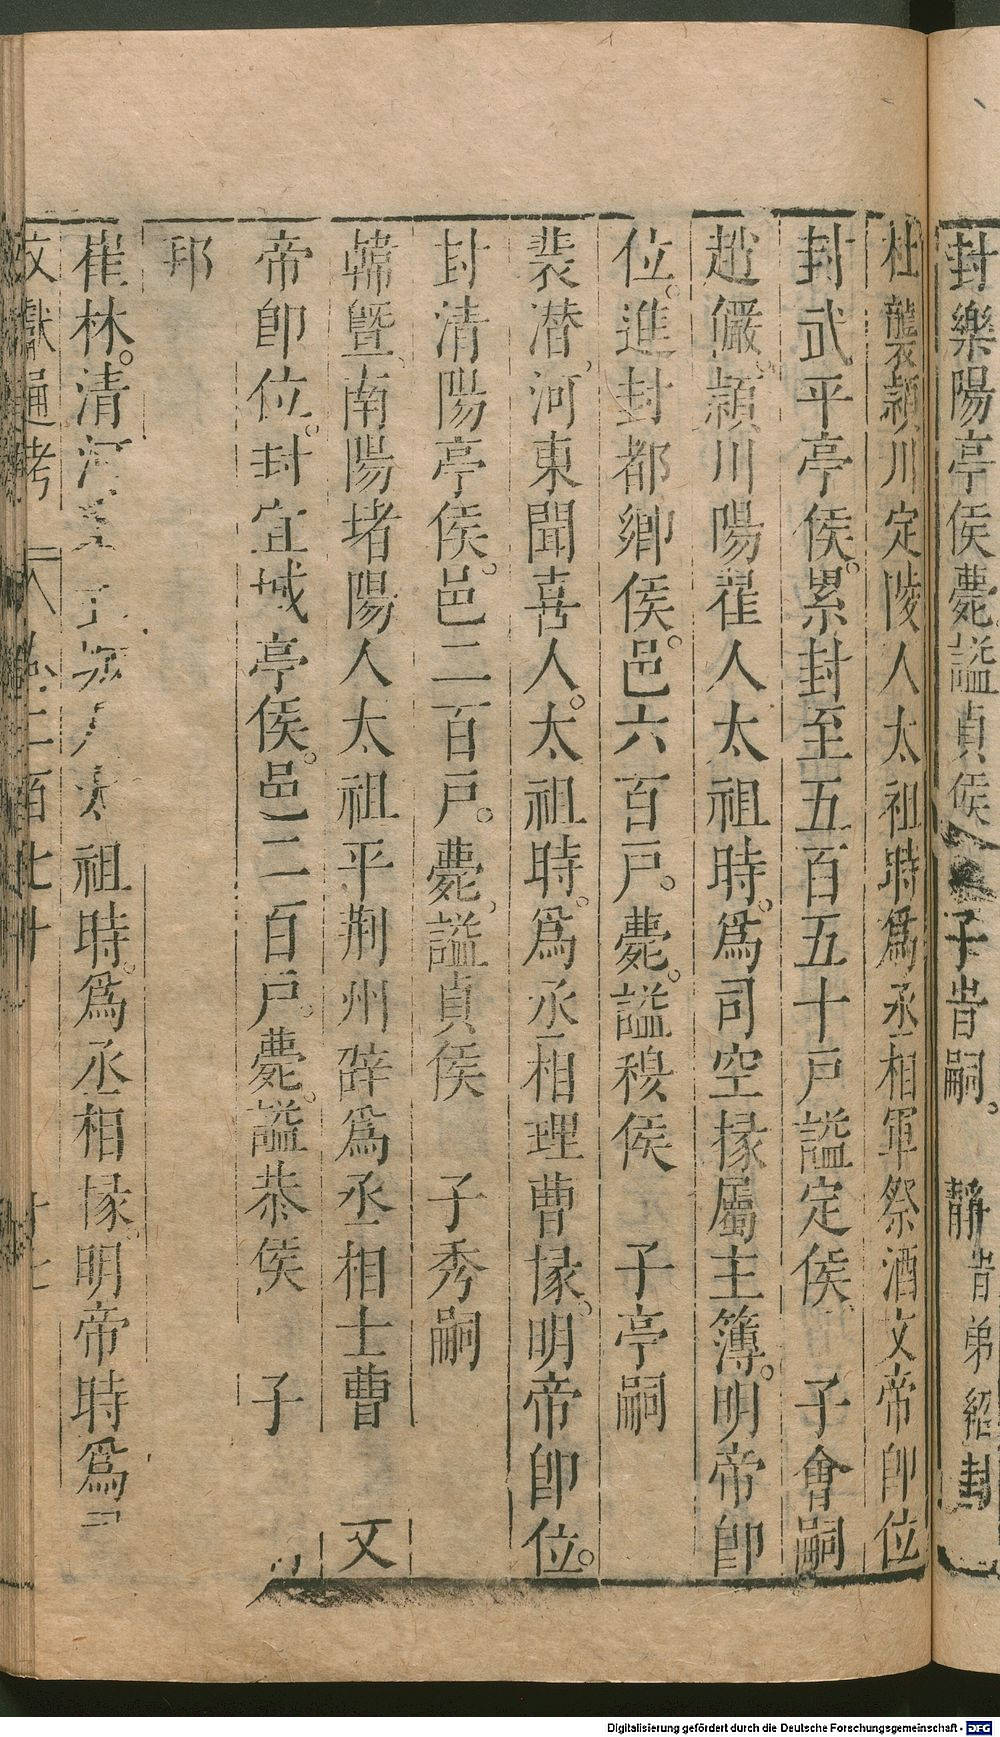 封樂陽亭侯薨謚貞侯 子昔嗣。 靜 昔弟紹封
杜襲潁川定陵人太祖時爲丞相軍祭酒文帝即位
封武平亭侯。累封至五百五十戸謚定侯 子會嗣
趙儼潁川陽翟人太祖時。爲司空掾屬主簿。明帝即
位。進封都鄉侯。邑六百戸。薨。謚穆侯 子亭嗣
裴潛河東聞喜人。太祖時。爲丞相理曹掾。明帝即位。
封清陽亭侯。邑二百戸。薨。謚貞侯 子秀嗣
韓曁南陽堵陽人太祖平荆州辟爲丞相士曹 文
帝即位。封宜城亭侯。邑二百戸。薨。謚恭侯 子
邦
崔林。清河 祖時。爲丞相掾明帝時爲
文獻通考 二百七十
Digitalisierung gefördert durch die Deutsche Forschungsgemeinschaft - DFG